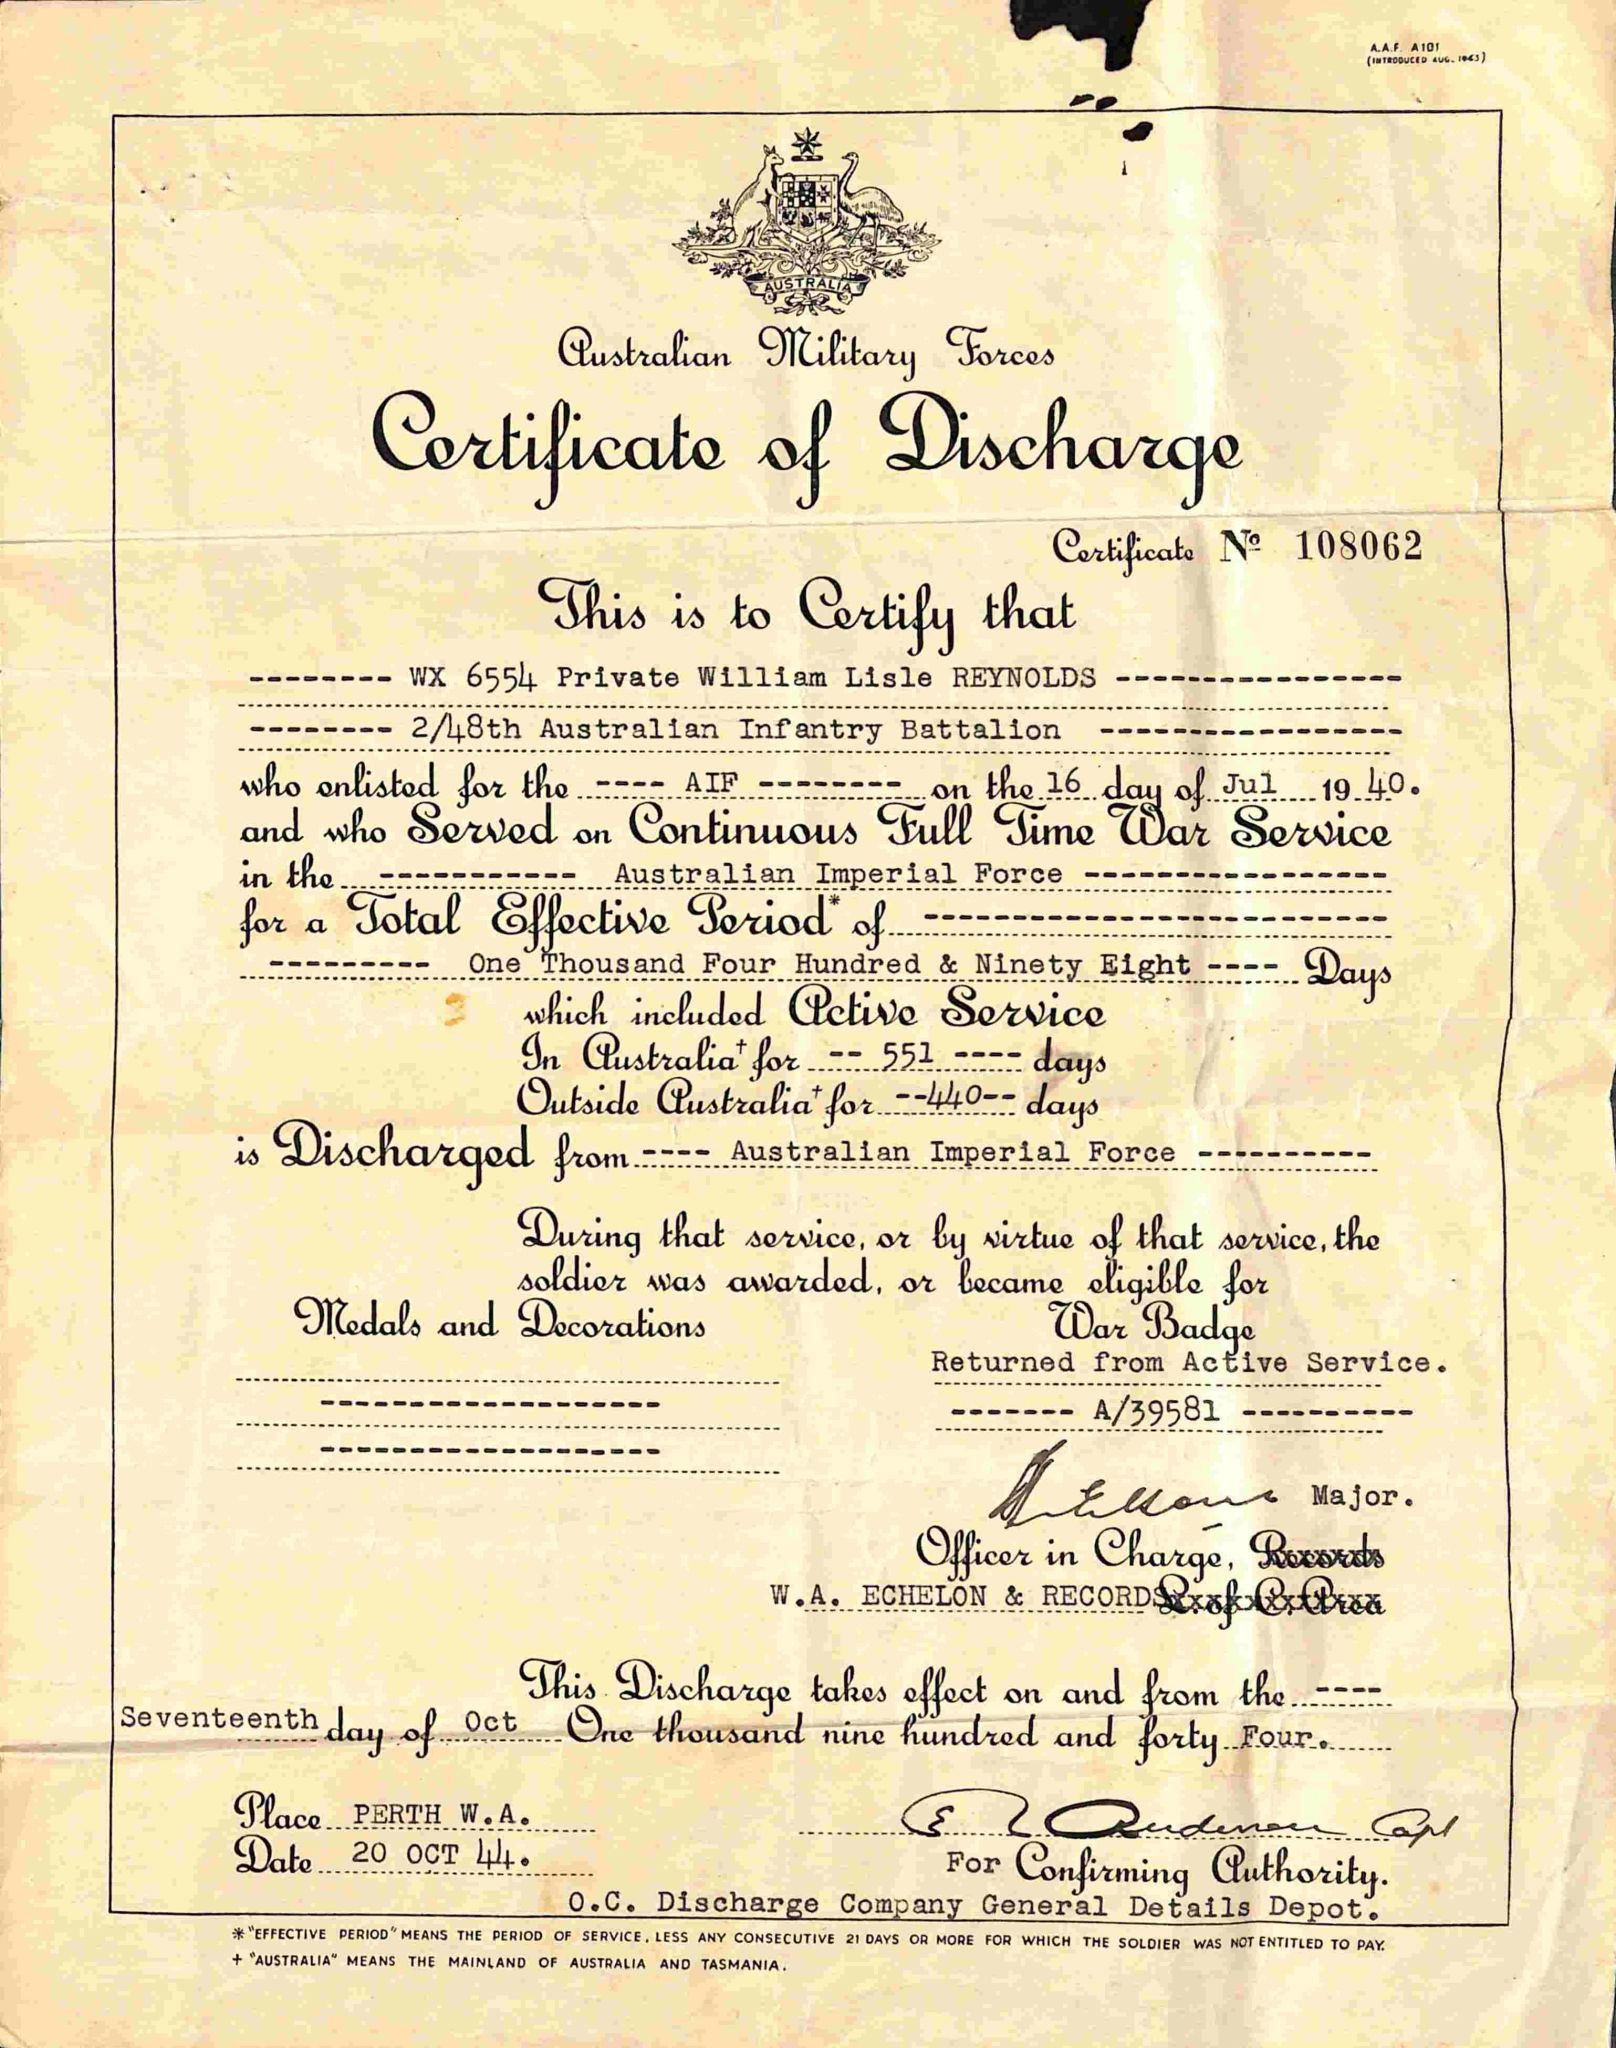 A.A.F. A101
(INTRODUCED AUG. 1943)
AUSTRALIA
Australian Military Forces
Certificate of Discharge
Certificate No 108062
This is to Certify that
-------- WX 6554 Private William Lisle REYNOLDS ----------------
-------- 2/48th Australian Infantry Battalion -----------------
who enlisted for the ---- AIF -------- on the 16 day of Jul 19 40.
and who Served on Continuous Full Time War Service
in the ----------- Australian Imperial Force -----------------
for a Total Effective Period* of --------------------------
--------- One Thousand Four Hundred & Ninety Eight ---- Days
which included Active Service
In Australia+ for -- 551 ---- days
Outside Australia+ for --440-- days
is Discharged from ---- Australian Imperial Force ----------
During that service, or by virtue of that service, the
soldier was awarded, or became eligible for
Medals and Decorations War Badge
Returned from Active Service.
------------------- ------- A/39581 ----------
-------------------
Major.
Officer in Charge, Records
W.A. ECHELON & RECORDS L. of C. Area
This Discharge takes effect on and from the ----
Seventeenth day of Oct One thousand nine hundred and forty Four.
Place PERTH W.A.
E Anderson Capt
Date 20 OCT 44.
For Confirming Authority.
O.C. Discharge Company General Details Depot.
* "EFFECTIVE PERIOD" MEANS THE PERIOD OF SERVICE, LESS ANY CONSECUTIVE 21 DAYS OR MORE FOR WHICH THE SOLDIER WAS NOT ENTITLED TO PAY.
+ "AUSTRALIA" MEANS THE MAINLAND OF AUSTRALIA AND TASMANIA.